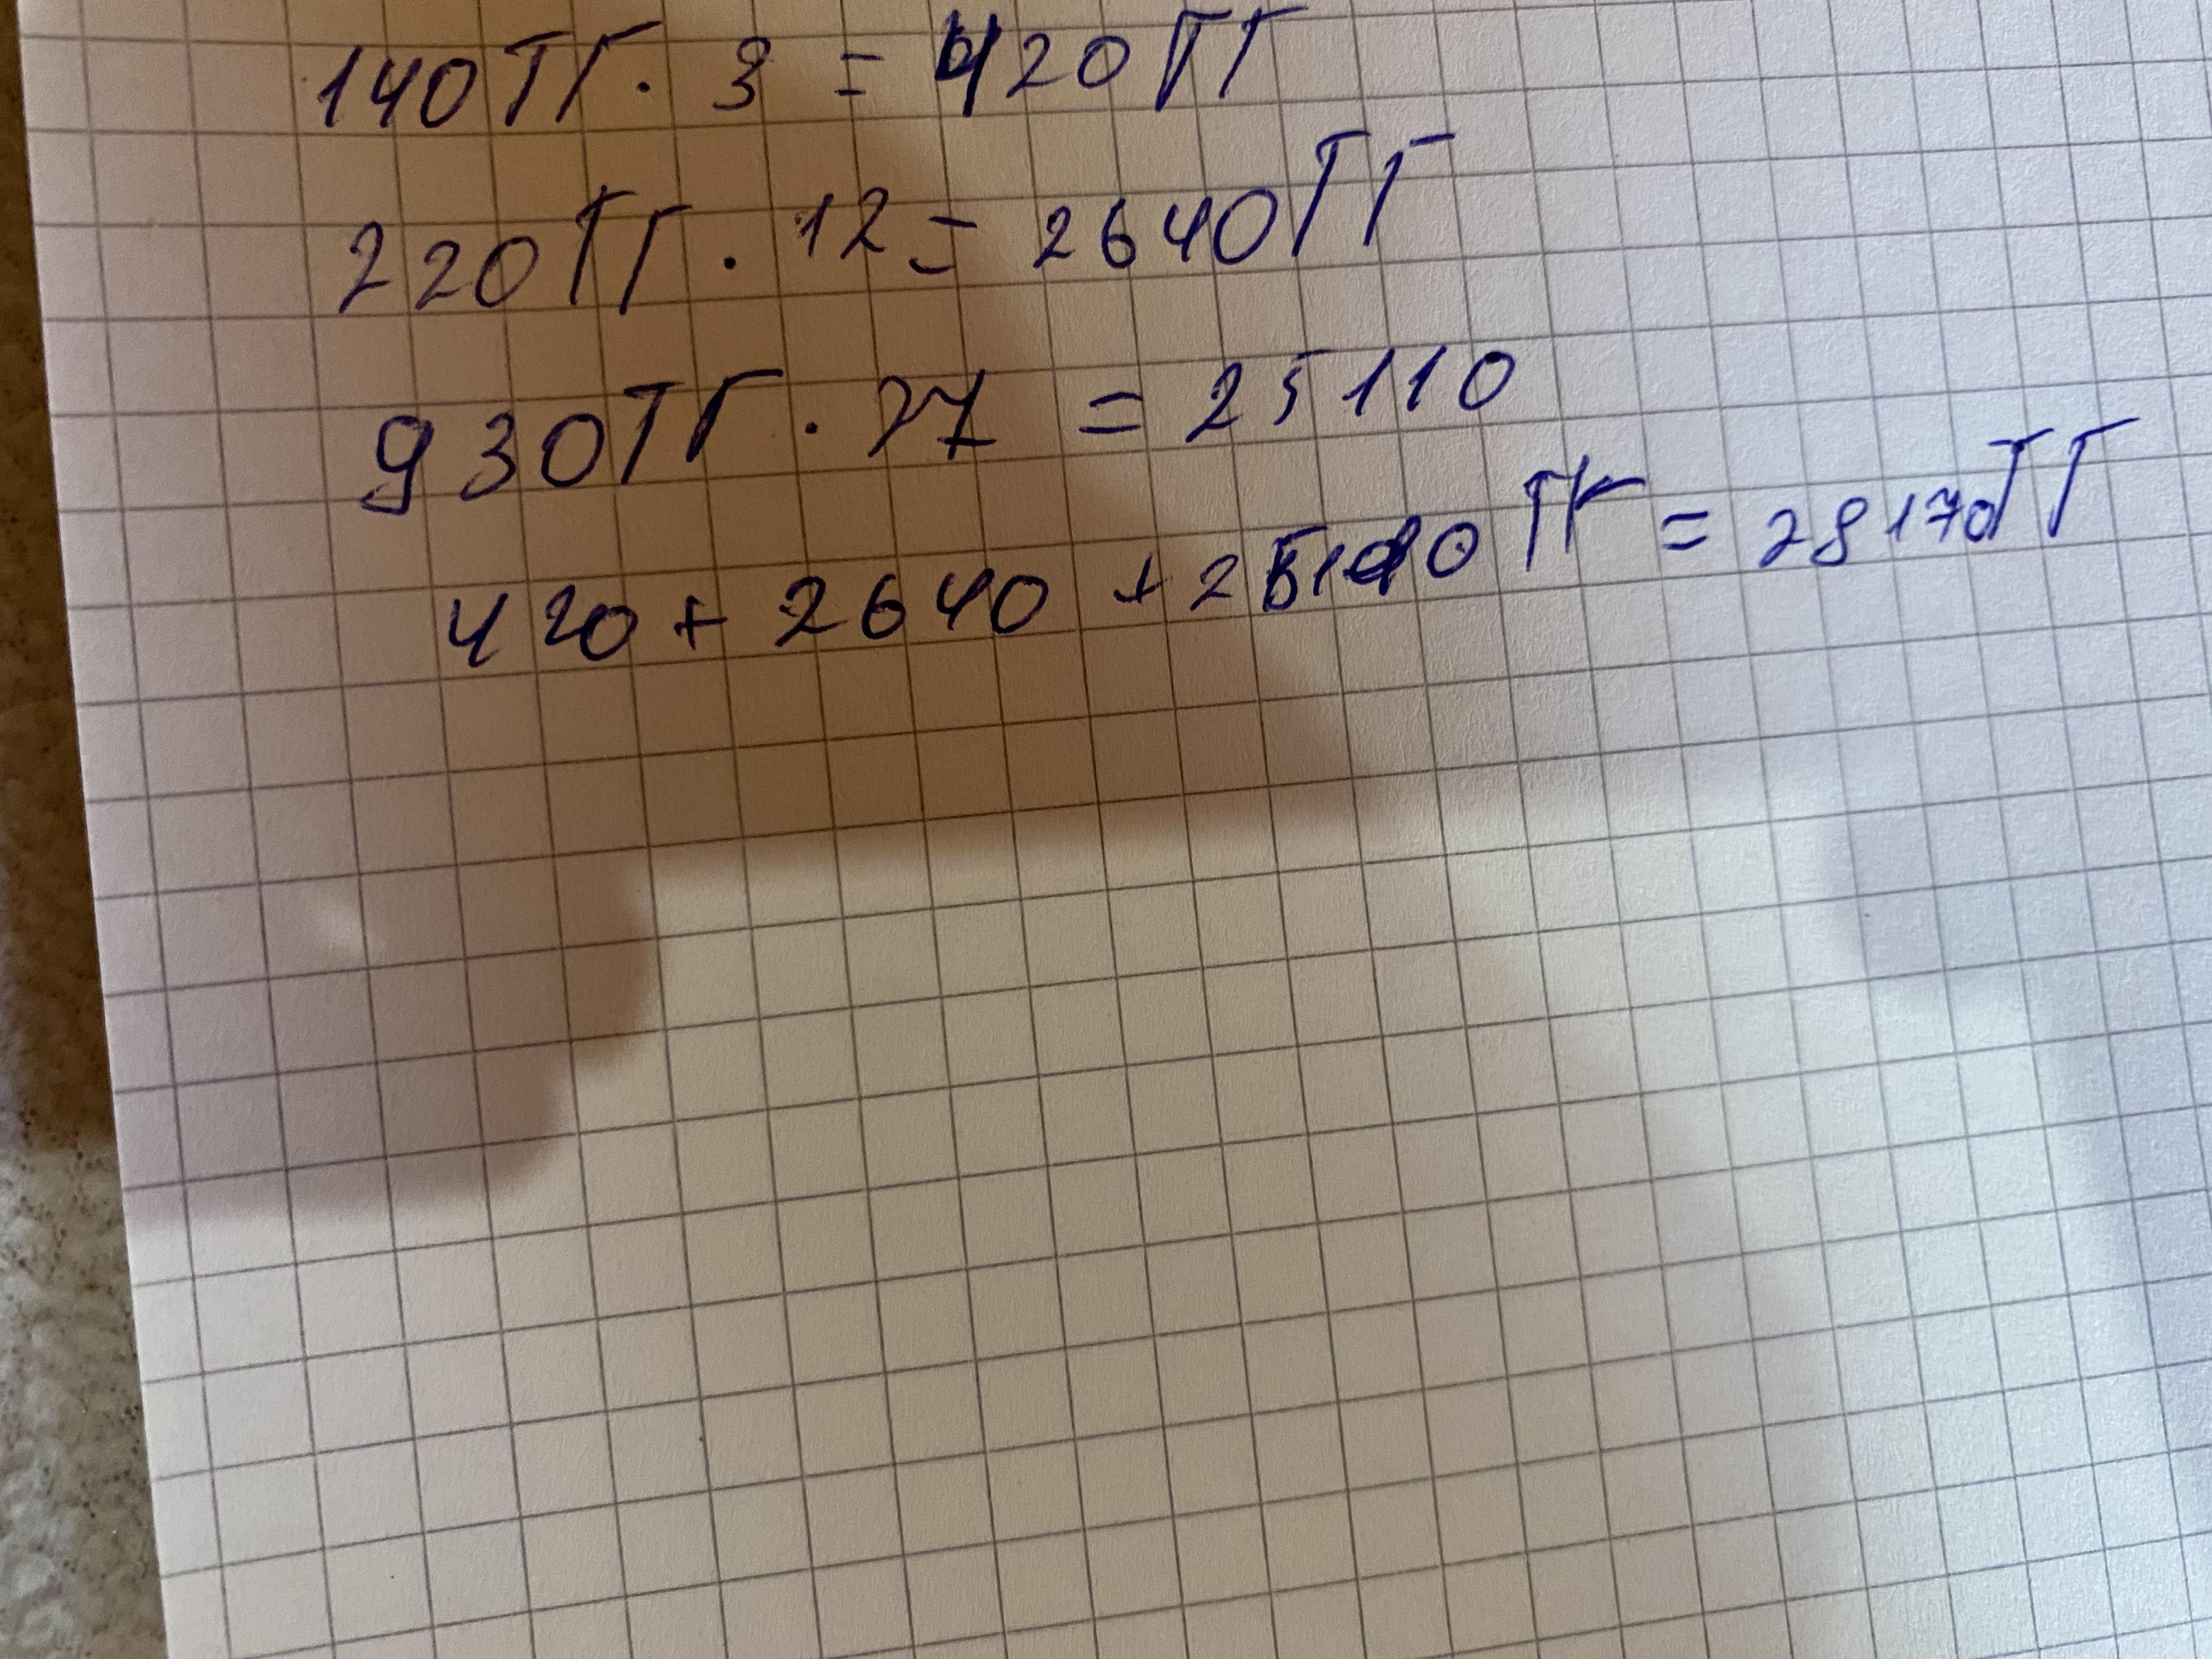 140тг · 3 = 420тг
220тг · 12 = 2640тг
930тг · 27 = 25110
420 + 2640 + 25110 тг = 28170тг